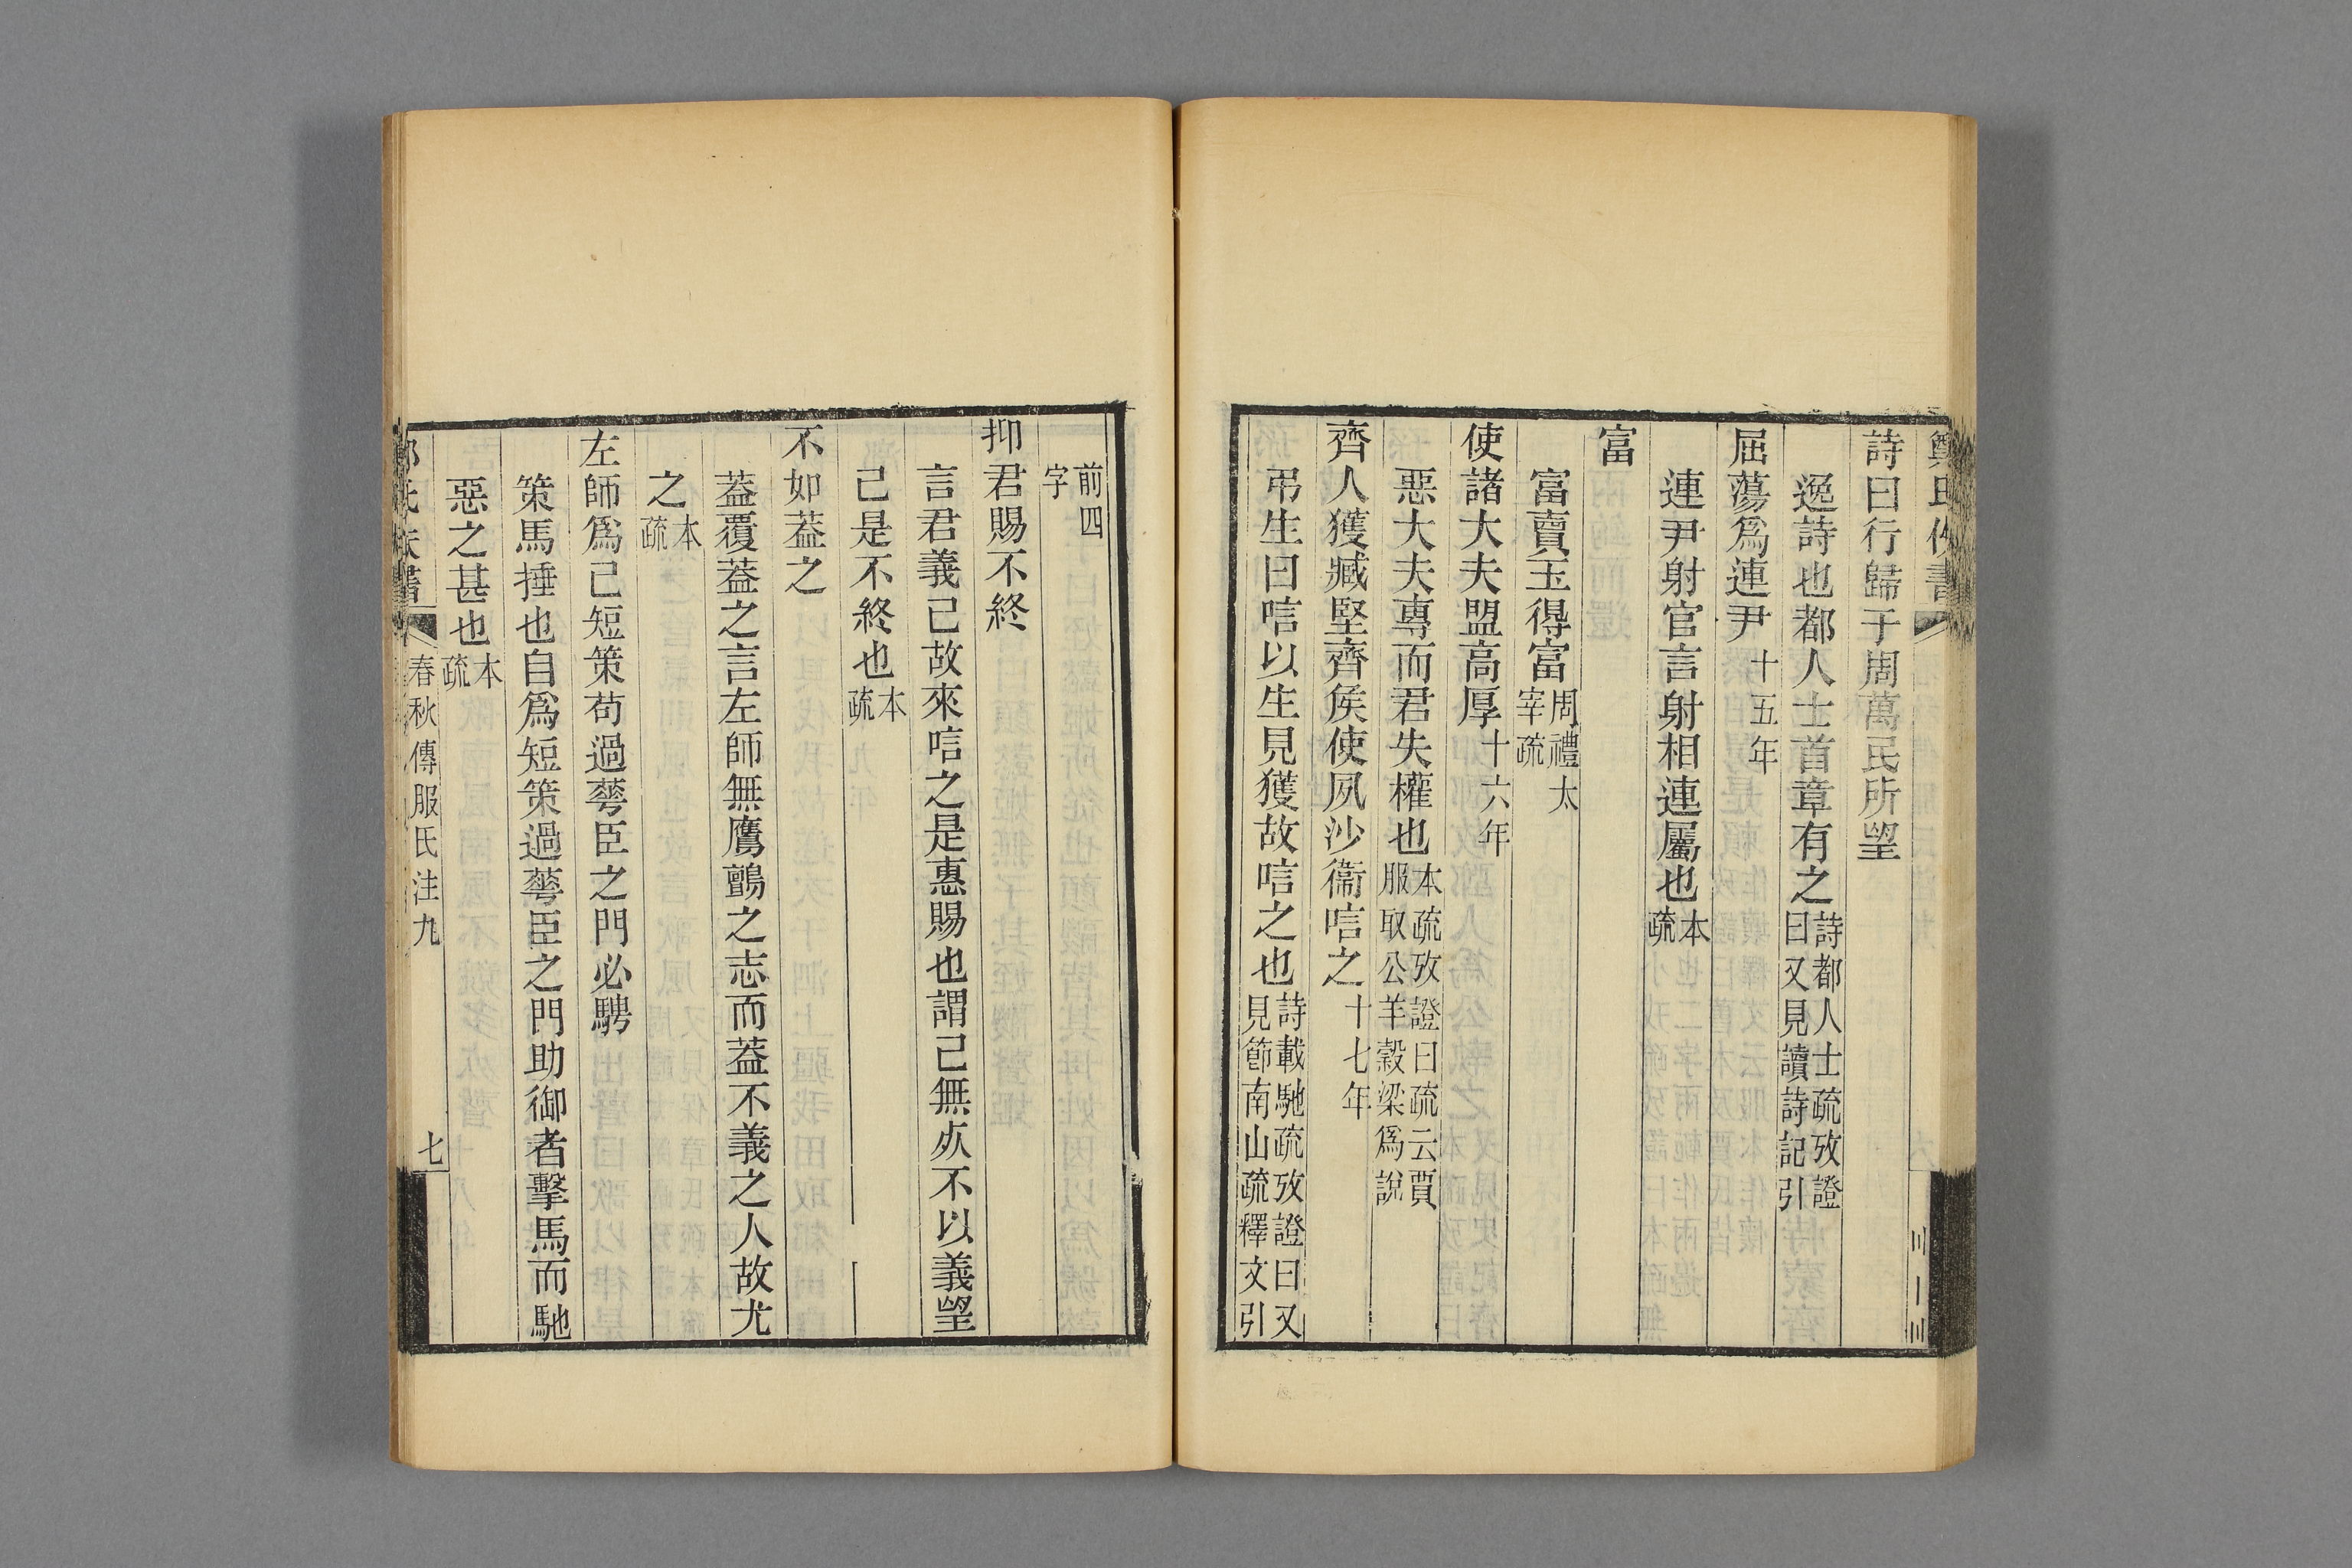 詩曰行歸于周萬民所望
逸詩也都人士首章有之詩都人士疏攷證曰又見讀詩記引
屈蕩爲連尹十五年
連尹射官言射相連屬也本疏
富
富賣玉得富周禮太宰疏
使諸大夫盟高厚十六年
惡大夫專而君失權也本疏攷證曰疏云賈服取公羊穀梁爲說
齊人獲臧堅齊矦使夙沙衞唁之十七年
弔生曰唁以生見獲故唁之也詩載馳疏攷證曰又見節南山疏釋文引
前四字
抑君賜不終
言君義己故來唁之是惠賜也謂己無死不以義望
己是不終也本疏
不如葢之
葢覆葢之言左師無鷹鸇之志而葢不義之人故尤
之本疏
左師爲己短策苟過華臣之門必騁
策馬捶也自爲短策過華臣之門助御者擊馬而馳
惡之甚也本疏
春秋傳服氏注九
七